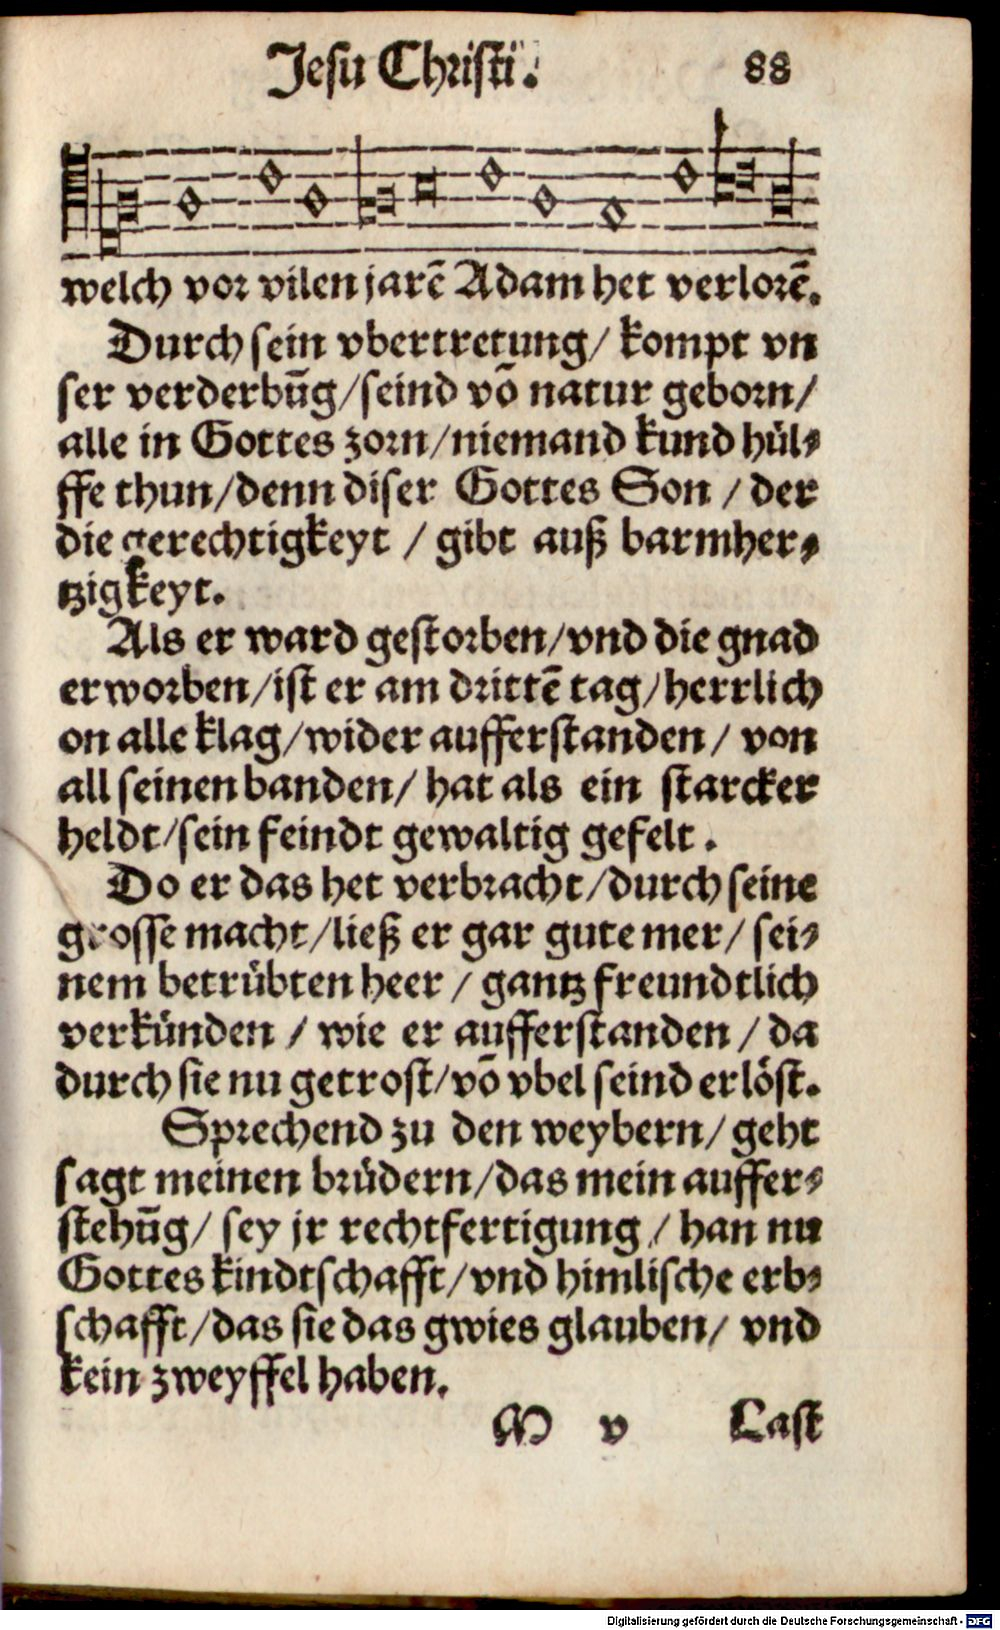 Jesu Christi. 88
welch vor vilen jarẽ Adam het verlorẽ.
Durch sein vbertretung/ kompt vn
ser verderbũg/seind võ natur geborn/
alle in Gottes zorn/niemand kund hül⸗
ffe thun/denn diser Gottes Son / der
die gerechtigkeyt / gibt auß barmher⸗
tzigkeyt.
Als er ward gestorben/vnd die gnad
erworben/ist er am drittẽ tag/herrlich
on alle klag/wider aufferstanden/ von
all seinen banden/ hat als ein starcker
heldt/sein feindt gewaltig gefelt.
Do er das het verbracht/durch seine
grosse macht/ließ er gar gute mer/ sei⸗
nem betrübten heer / gantz freundtlich
verkünden / wie er aufferstanden / da
durch sie nu getrost/võ vbel seind erlöst.
Sprechend zu den weybern/ geht
sagt meinen brüdern/das mein auffer⸗
stehũg/ sey jr rechtfertigung / han nu
Gottes kindtschafft/vnd himlische erb⸗
schafft/das sie das gwies glauben/ vnd
kein zweyffel haben.
M v Last
Digitalisierung gefördert durch die Deutsche Forschungsgemeinschaft - DFG